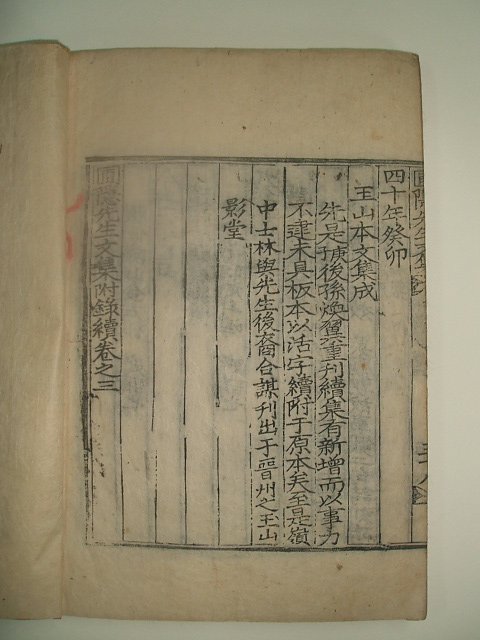 四十年癸卯
玉山本文集成
先是 後孫煥翼重刊續集有新增而以事力
不逮未具板本以活字續附于原本矣至是嶺
中士林與先生後裔合謀刊出于晉州之玉山
影堂
圃隱先生文集附錄續卷之三